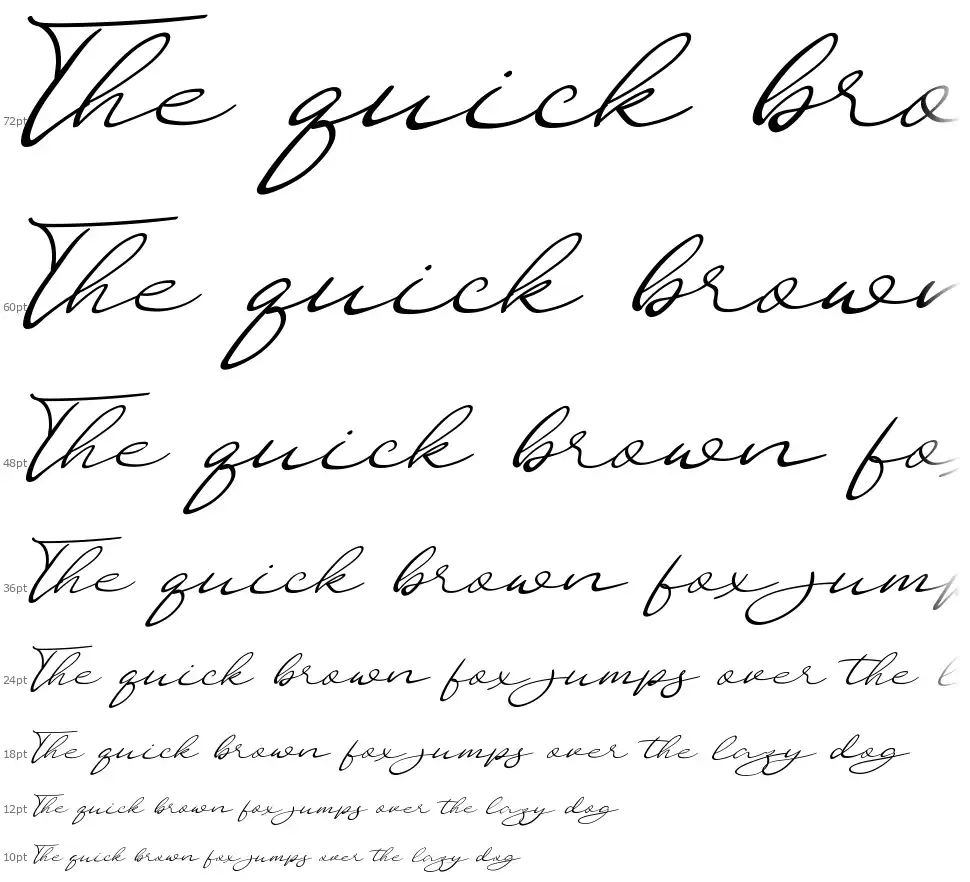 72pt The quick bro
60pt The quick brown
48pt The quick brown fox
36pt The quick brown fox jump
24pt The quick brown fox jumps over the l
18pt The quick brown fox jumps over the lazy dog
12pt The quick brown fox jumps over the lazy dog
10pt The quick brown fox jumps over the lazy dog